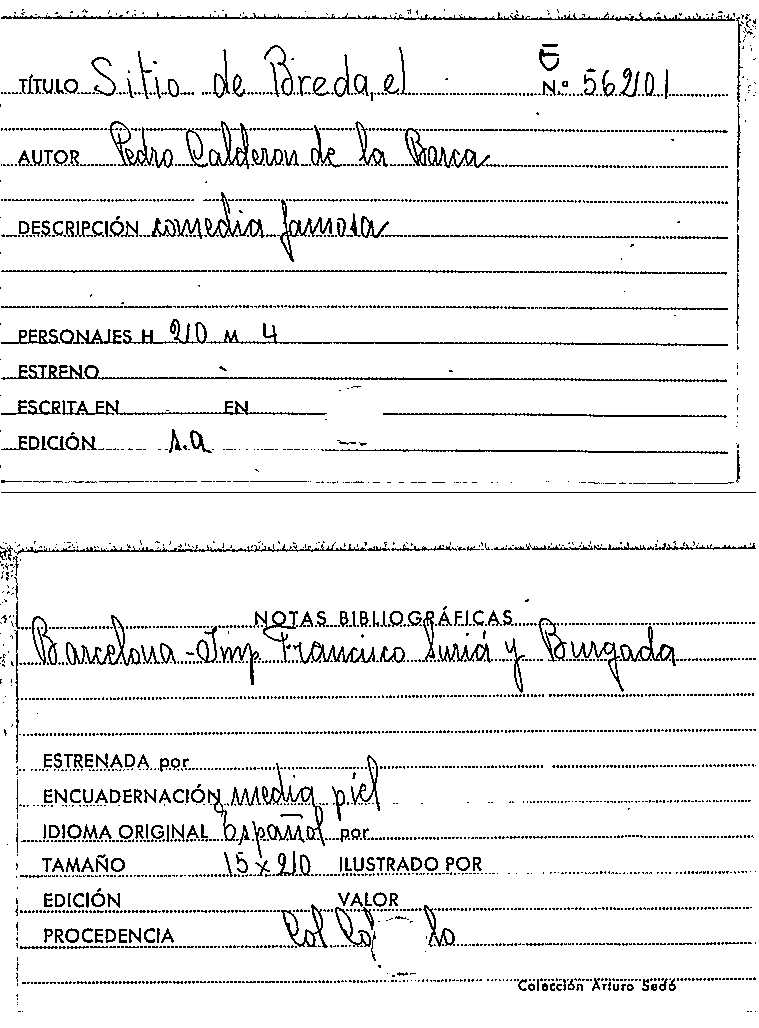 TÍTULO Sitio de Breda, el N.º 56201
AUTOR Pedro Calderon de la Barca
DESCRIPCIÓN comedia famosa
PERSONAJES H 20 M 4
ESTRENO
ESCRITA EN EN
EDICIÓN s.a
NOTAS BIBLIOGRÁFICAS
Barcelona - Imp Francisco Suriá y Burgada
ESTRENADA por
ENCUADERNACIÓN media piel
IDIOMA ORIGINAL Español por
TAMAÑO 15 x 20 ILUSTRADO POR
EDICIÓN VALOR
PROCEDENCIA Col
Colección Arturo Sedó